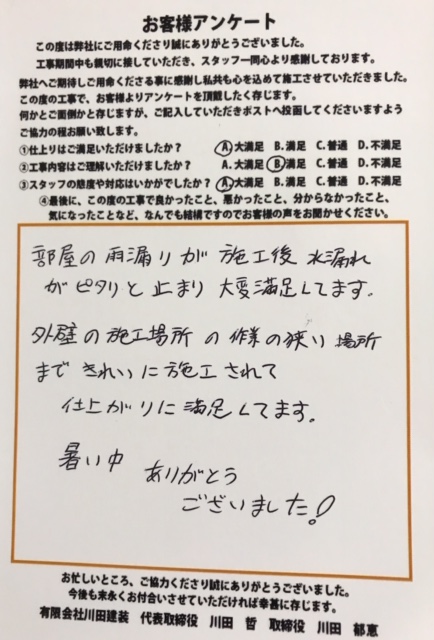 お客様アンケート
この度は弊社にご用命くださり誠にありがとうございました。
工事期間中も親切に接していただき、スタッフ一同心より感謝しております。
弊社へご期待しご用命くださる事に感謝し私共も心を込めて施工させていただきました。
この度の工事で、お客様よりアンケートを頂戴したく存じます。
何かとご面倒かと存じますが、ご記入していただきポストへ投函してくださいますよう
ご協力の程お願い致します。
①仕上りはご満足いただけましたか? A.大満足 B.満足 C.普通 D.不満足
②工事内容はご理解いただけましたか? A.大満足 B.満足 C.普通 D.不満足
③スタッフの態度や対応はいかがでしたか? A.大満足 B.満足 C.普通 D.不満足
④最後に、この度の工事で良かったこと、悪かったこと、分からなかったこと、
気になったことなど、なんでも結構ですのでお客様の声をお聞かせください。
部屋の雨漏りが施工後水漏れ
がピタリと止まり大変満足してます。
外壁の施工場所の作業の狭い場所
まできれいに施工されて
仕上がりに満足してます。
暑い中
ありがとう
ございました!
お忙しいところ、ご協力くださり誠にありがとうございました。
今後も末永くお付合いさせていただければ幸甚に存じます。
有限会社川田建装 代表取締役 川田 哲 取締役 川田 郁恵